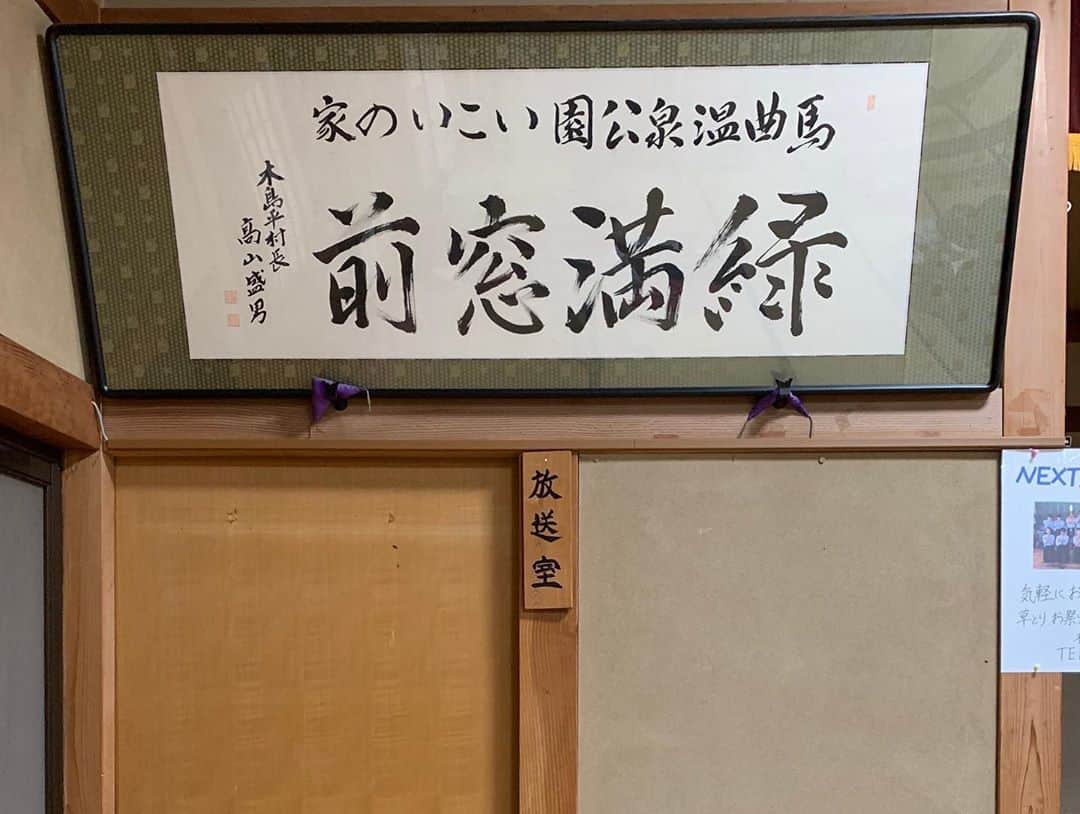 馬曲温泉公園いこいの家
緑満窓前
木島平村長
高山盛男
放送室
NEXT
気軽にお
草とりお祭
TEL